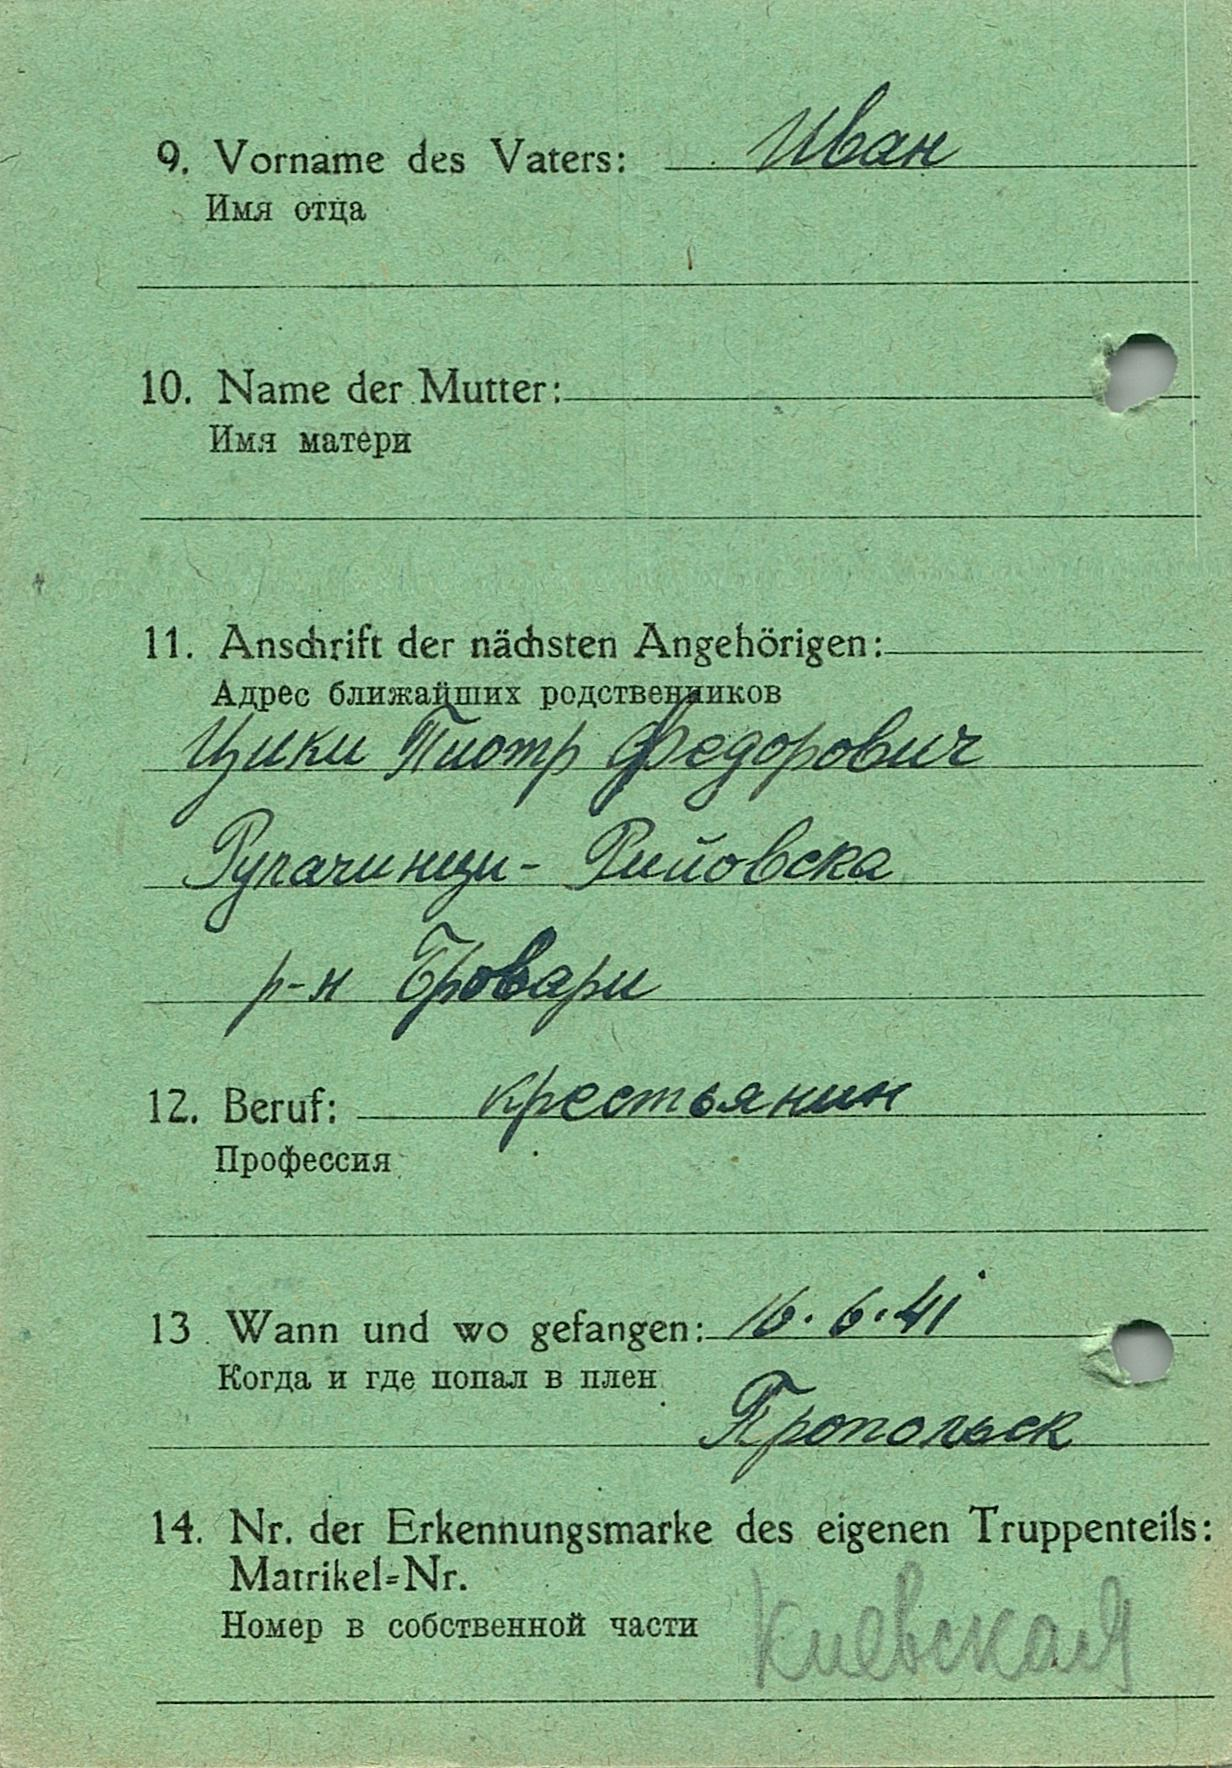 9. Vorname des Vaters: Иван
Имя отца
10. Name der Mutter:
Имя матери
11. Anschrift der nächsten Angehörigen:
Адрес ближайших родственников
Цики Пиотр Федорович
Ругачинци - Рийовска
р-н Бровари
12. Beruf: крестьянин
Профессия
13. Wann und wo gefangen: 16.6.41
Когда и где попал в плен
Пропольск
14. Nr. der Erkennungsmarke des eigenen Truppenteils:
Matrikel=Nr.
Номер в собственной части
Киевская